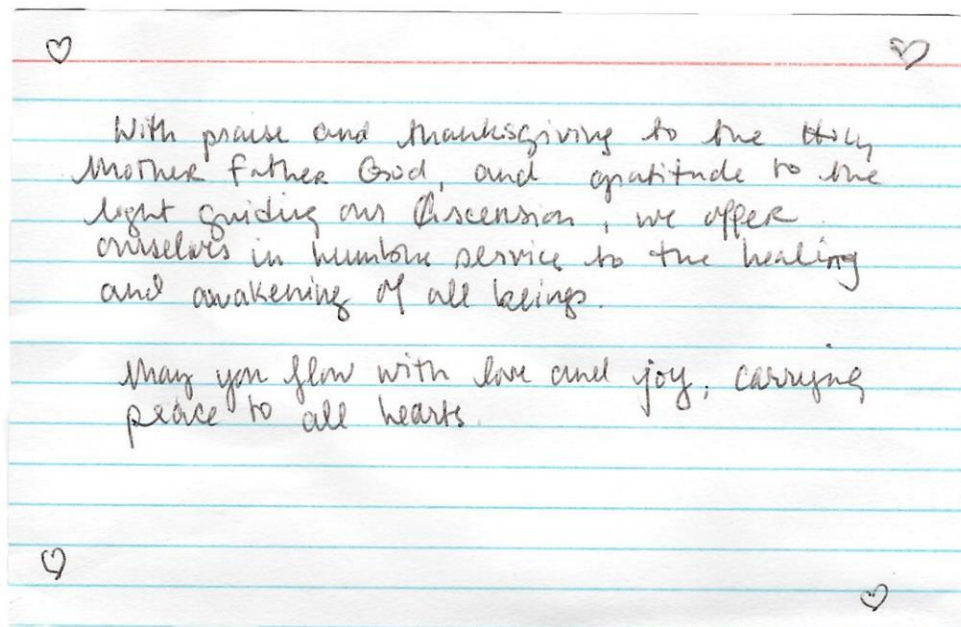 With praise and thanksgiving to the Holy
Mother Father God, and gratitude to the
light guiding our Ascension, we offer
ourselves in humble service to the healing
and awakening of all beings.
May you flow with love and joy, carrying
peace to all hearts.